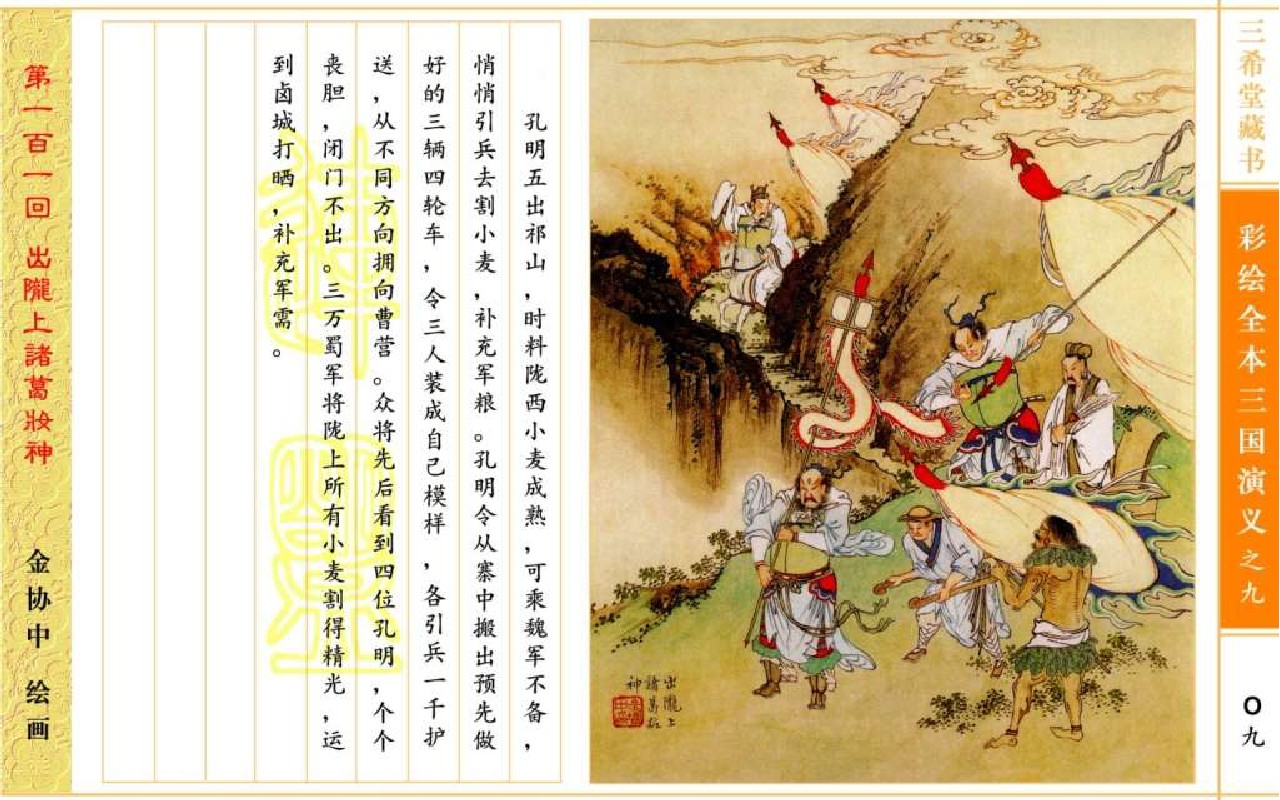 三希堂藏书
彩绘全本三国演义之九
〇九
出隴上
諸葛妝
神
孔明五出祁山，时料陇西小麦成熟，可乘魏军不备，
悄悄引兵去割小麦，补充军粮。孔明令从寨中搬出预先做
好的三辆四轮车，令三人装成自己模样，各引兵一千护
送，从不同方向拥向曹营。众将先后看到四位孔明，个个
丧胆，闭门不出。三万蜀军将陇上所有小麦割得精光，运
到卤城打晒，补充军需。
第一百一回 出隴上諸葛妝神
金协中 绘画